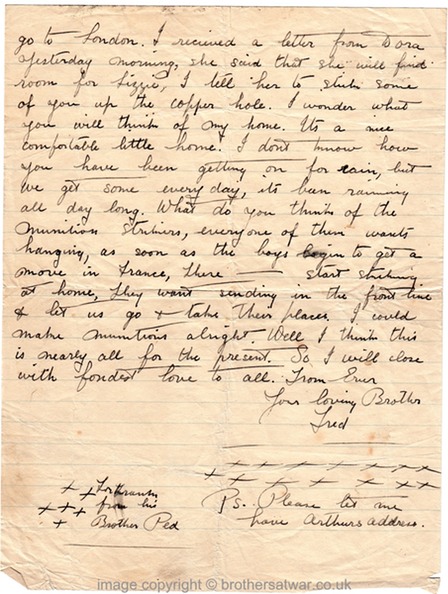 go to London. I recieved a letter from Dora
yesterday morning, she said that she will find
room for Lizzie, I tell her to stick some
of you up the copper hole. I wonder what
you will think of my home. Its a nice
comfortable little home. I dont know how
you have been getting on for rain, but
we get some every day, its been raining
all day long. What do you think of the
munition strikers, everyone of them wants
hanging, as soon as the boys begin to get a
move in France, there — start striking
at home, they want sending in the front line
& let us go & take their places. I could
make munitions alright. Well I think this
is nearly all for the present. So I will close
with fondest love to all. From Ever
Your loving Brother
Fred
+ + + + + + + +
+ + + + + + +
+ + For
+ + + from his
+ Brother
Ps. Please let me
have Arthurs address.
image copyright © brothersatwar.co.uk